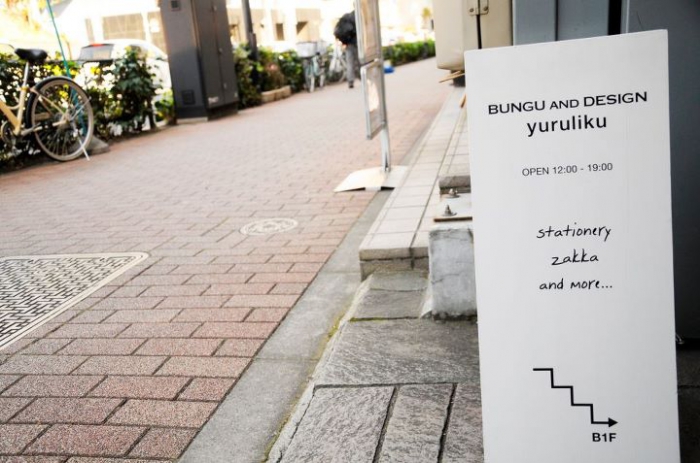 BUNGU AND DESIGN
yuruliku
OPEN 12:00 - 19:00
stationery
zakka
and more...
B1F